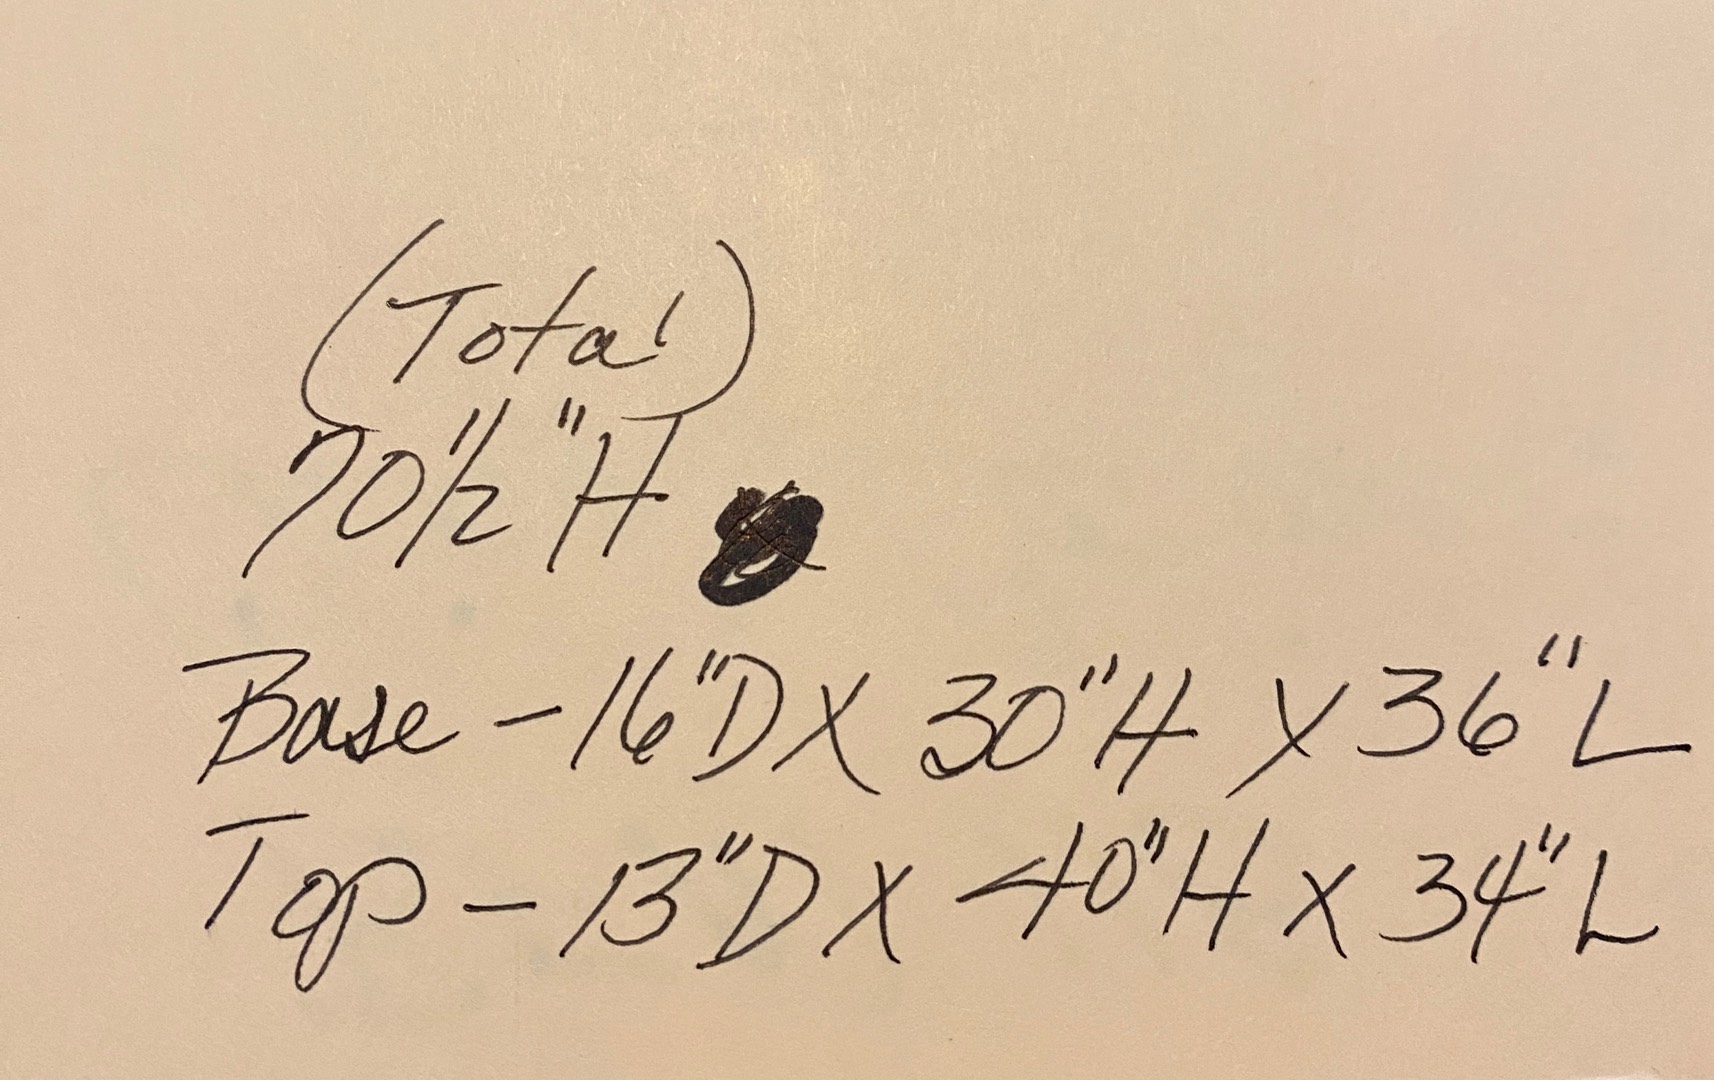 (Total)
70 1/2" H
Base - 16" D X 30" H X 36" L
Top - 13" D X 40" H X 34" L